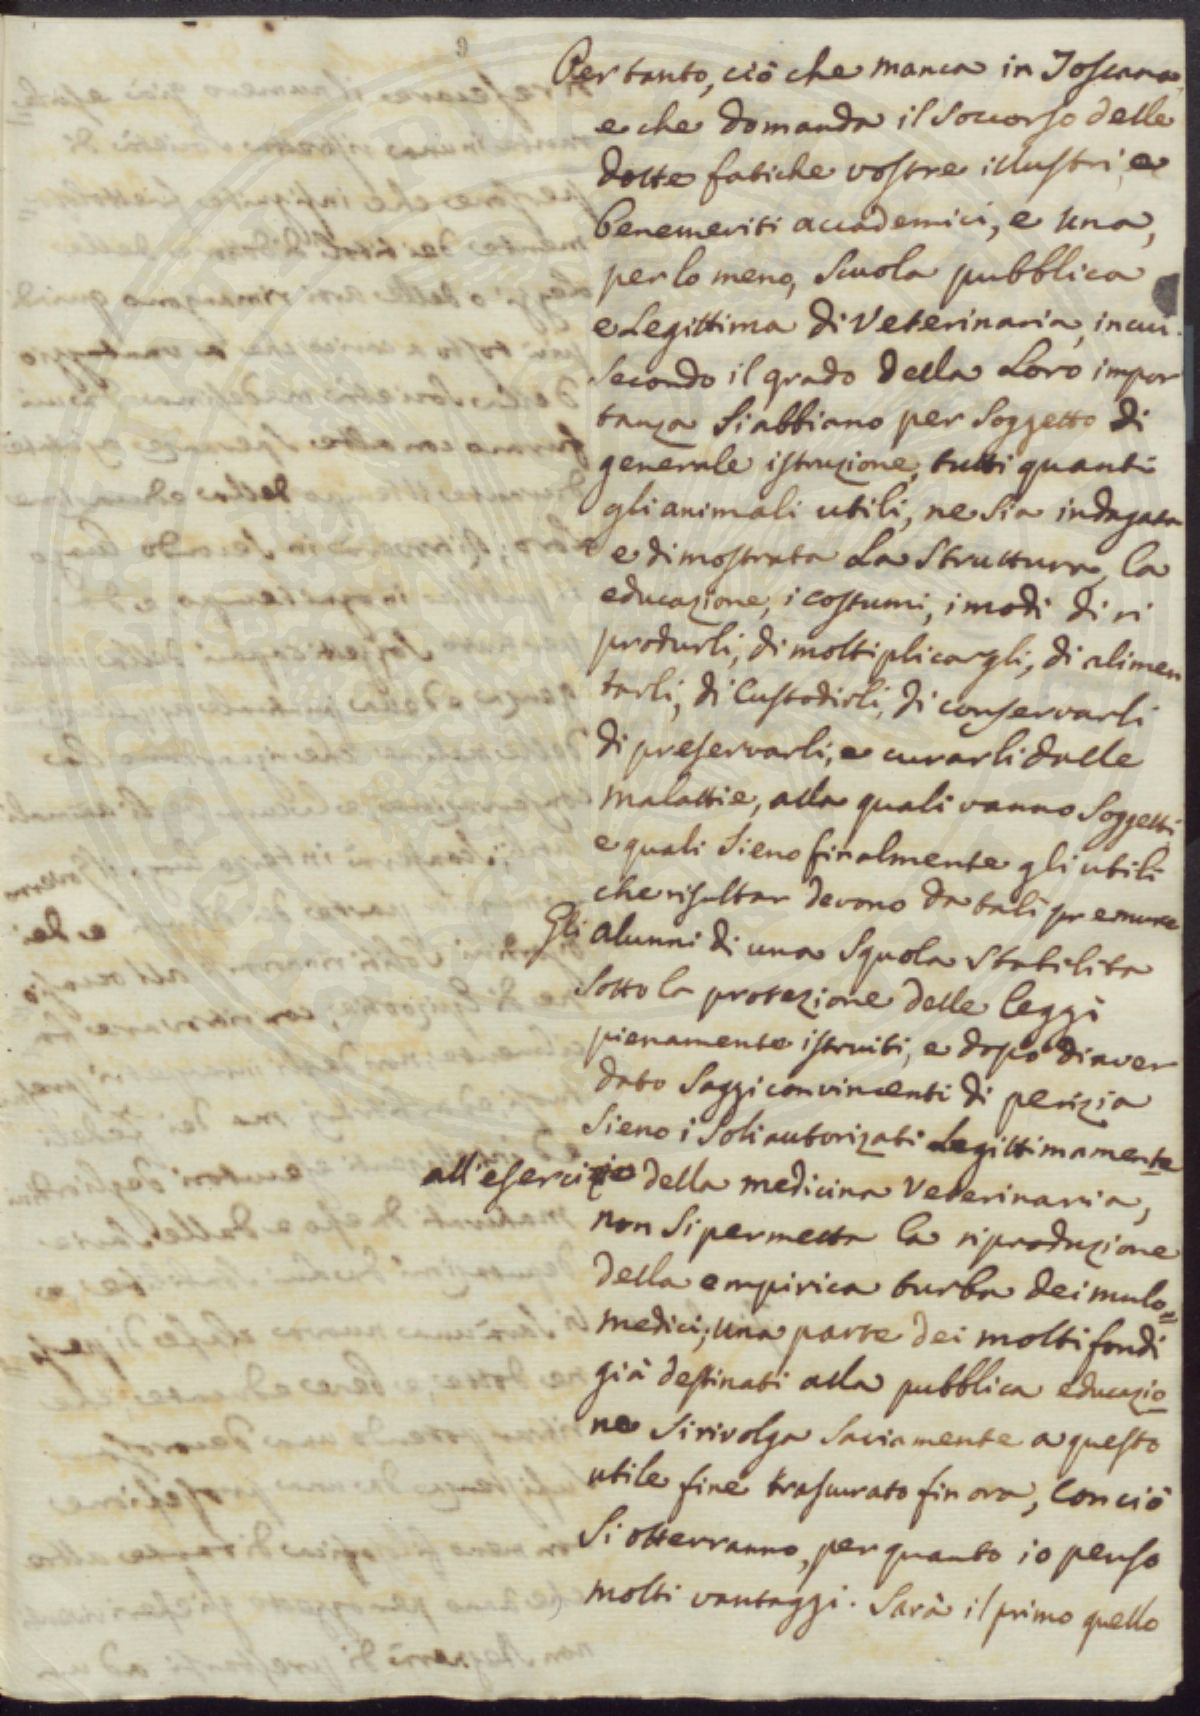 9
Per tanto, ciò che manca in Toscana,
e che domanda il Soccorso delle
dotte fatiche vostre illustri, e
benemeriti accademici, e una,
per lo meno, Scuola pubblica
e Legittima di Veterinaria, in cui.
Secondo il grado della Loro impor
tanza Si abbiano per Soggetto di
generale istruzione, tutti quanti
gli animali utili, ne Sia indagata
e dimostrata La Struttura, la
educazione, i costumi, i modi di ri
produrli, di moltiplicargli, di alimen
tarli, di Custodirli, di conservarli
di preservarli, e curarli dalle
malattie, alla quali vanno Soggetti
e quali Sieno finalmente gli utili
che risultar devono da tali premure
Gli alunni di una Squola Stabilita
Sotto la protezione delle leggi
pienamente istruiti, e dopo di aver
dato Saggi convincenti di perizia
Sieno i Soli autorizati Legittimamente
all'esercizio della medicina Veterinaria,
non Si permetta la riproduzione
della empirica turba dei mulo=
medici; una parte dei molti fondi
già destinati alla pubblica educazio
ne Si rivolga Saviamente a questo
utile fine trascurato fin ora, Con ciò
Si otterranno, per quanto io penso
molti vantaggi. Sarà il primo quello